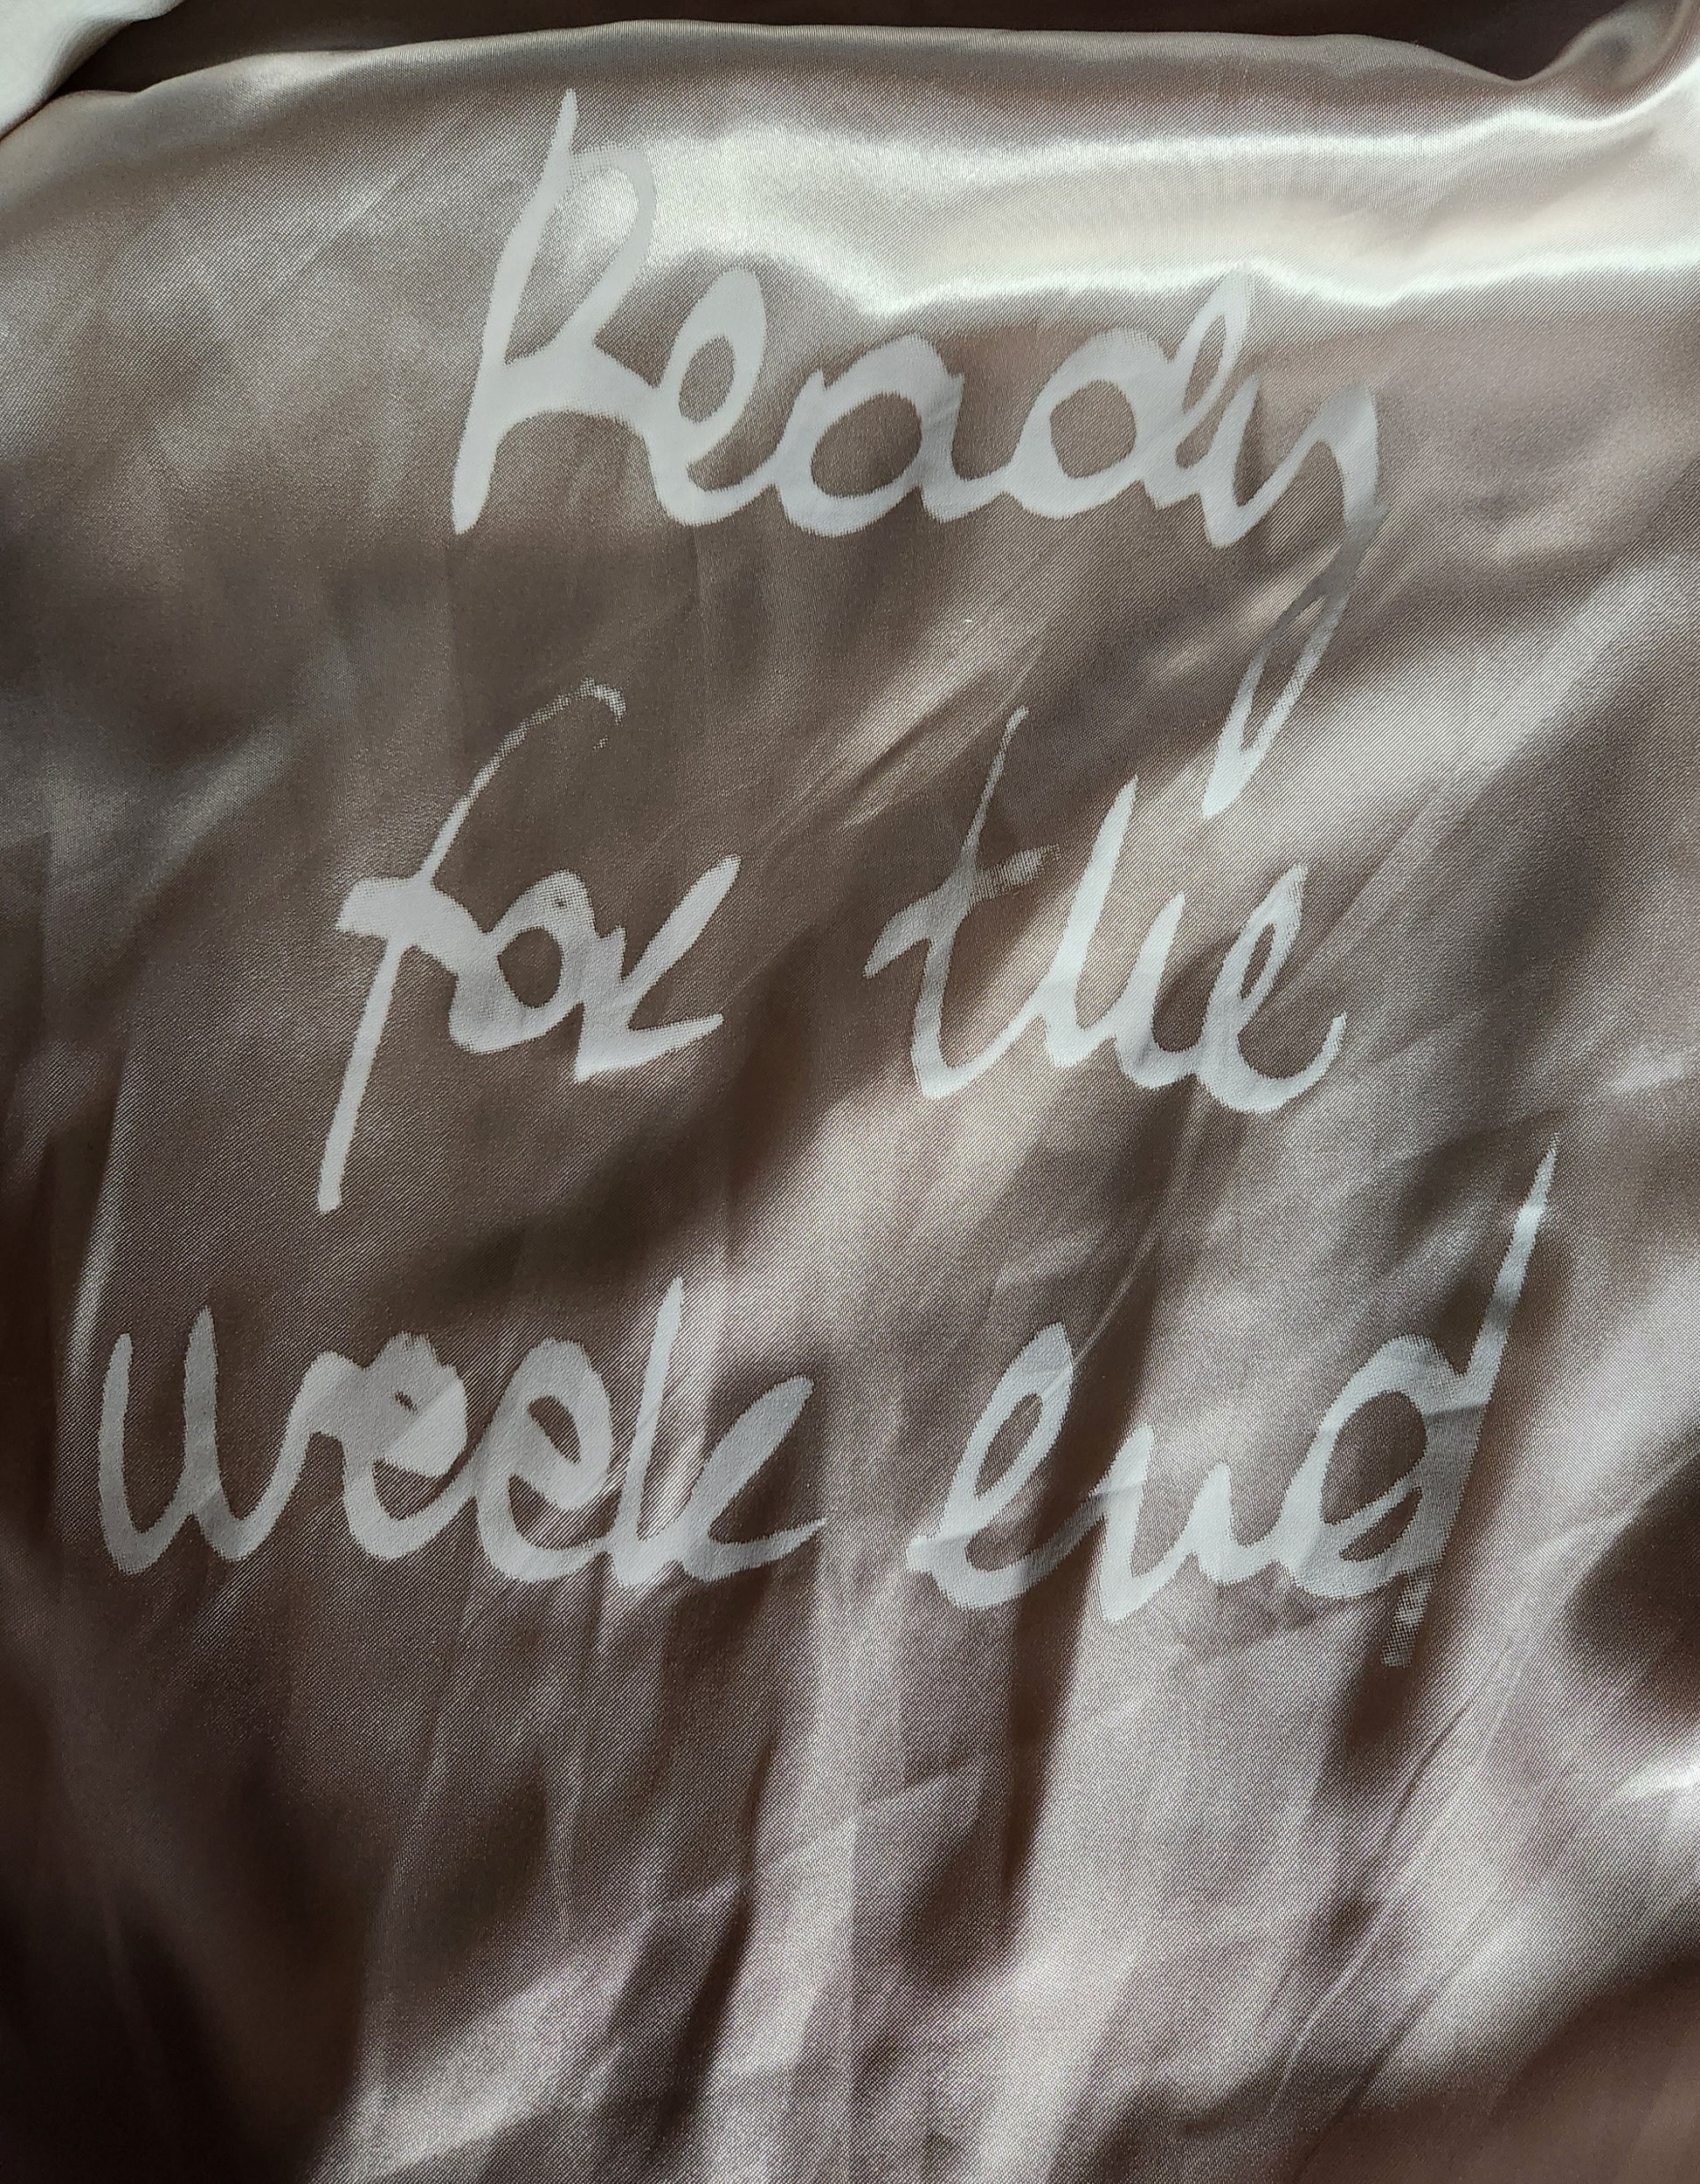 Ready
for the
week end